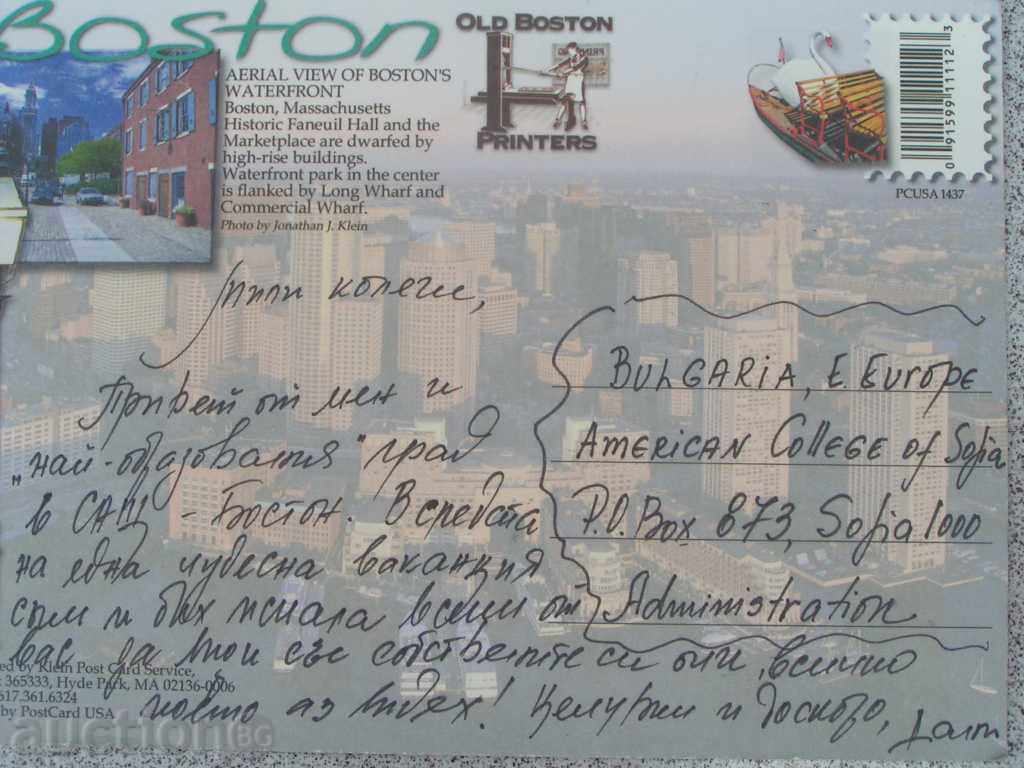 Boston
OLD BOSTON
PRINTERS
AERIAL VIEW OF BOSTON'S
WATERFRONT
Boston, Massachusetts
Historic Faneuil Hall and the
Marketplace are dwarfed by
high-rise buildings.
Waterfront park in the center
is flanked by Long Wharf and
Commercial Wharf.
Photo by Jonathan J. Klein
0 91599 11112 3
PCUSA 1437
Мили колеги,
Привет от мен и
„най-образования" град
в САЩ - Бостон. В средата
на една чудесна ваканция
съм и бих желала всеки от
вас да види със собствените си очи всичко
което аз видях! Целувки и доскоро,
BULGARIA, E. EUROPE
AMERICAN COLLEGE of Sofia
P.O. Box 873, Sofia 1000
Administration
ed by Klein Post Card Service,
365333, Hyde Park, MA 02136-0006
617.361.6324
by PostCard USA
auctionBG